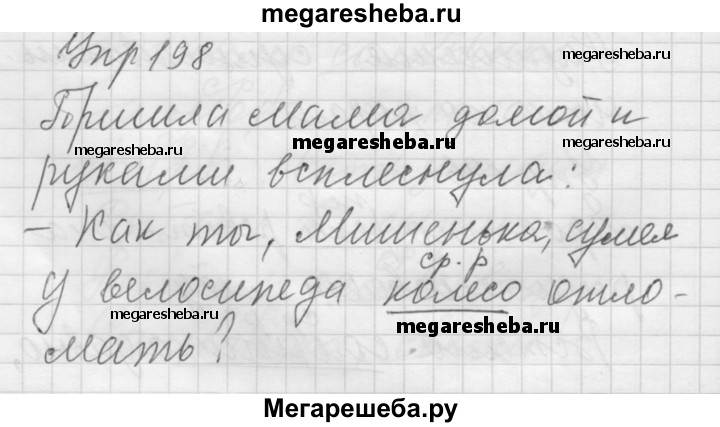 megaresheba.ru
Упр 198
megaresheba.ru
Пришла мама домой и
megaresheba.ru
megaresheba.ru
руками всплеснула:
- Как ты, Мишенька, сумел
ср.р
у велосипеда колесо отло-
megaresheba.ru
megaresheba.ru
мать?
Мегарешеба.ру